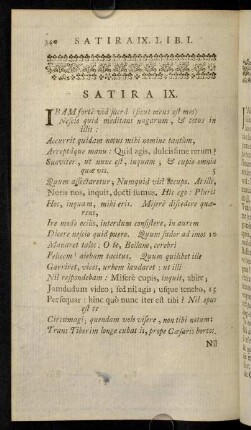 340 SATIRA IX. LIB. I.
SATIRA IX.
IBAM fortè viâ sacrâ (sicut meus est mos)
Nescio quid meditans nugarum, & totus in
illis:
Accurrit quidam notus mihi nomine tantùm,
Arreptâque manu: Quid agis, dulcissime rerum?
Suaviter, ut nunc est, inquam, & cupio omnia
quæ vis. 5
Quum assectaretur, Numquid vis? occupo. At ille,
Noris nos, inquit, docti sumus. Hîc ego: Pluris
Hoc, inquam, mihi eris. Miserè discedere quæ-
rens,
Ire modò ociùs, interdum consistere, in aurem
Dicere nescio quid puero. Quum sudor ad imos 10
Manaret talos: O te, Bollane, cerebri
Felicem! aiebam tacitus. Quum quidlibet ille
Garriret, vicos, urbem laudaret: ut illi
Nil respondebam: Miserè cupis, inquit, abire,
Jamdudum video; sed nil agis; usque tenebo, 15
Persequar: hinc quò nunc iter est tibi? Nil opus
est te
Circumagi; quendam volo visere, non tibi notum:
Trans Tiberim longè cubat is, prope Cæsaris hortos.
Nil